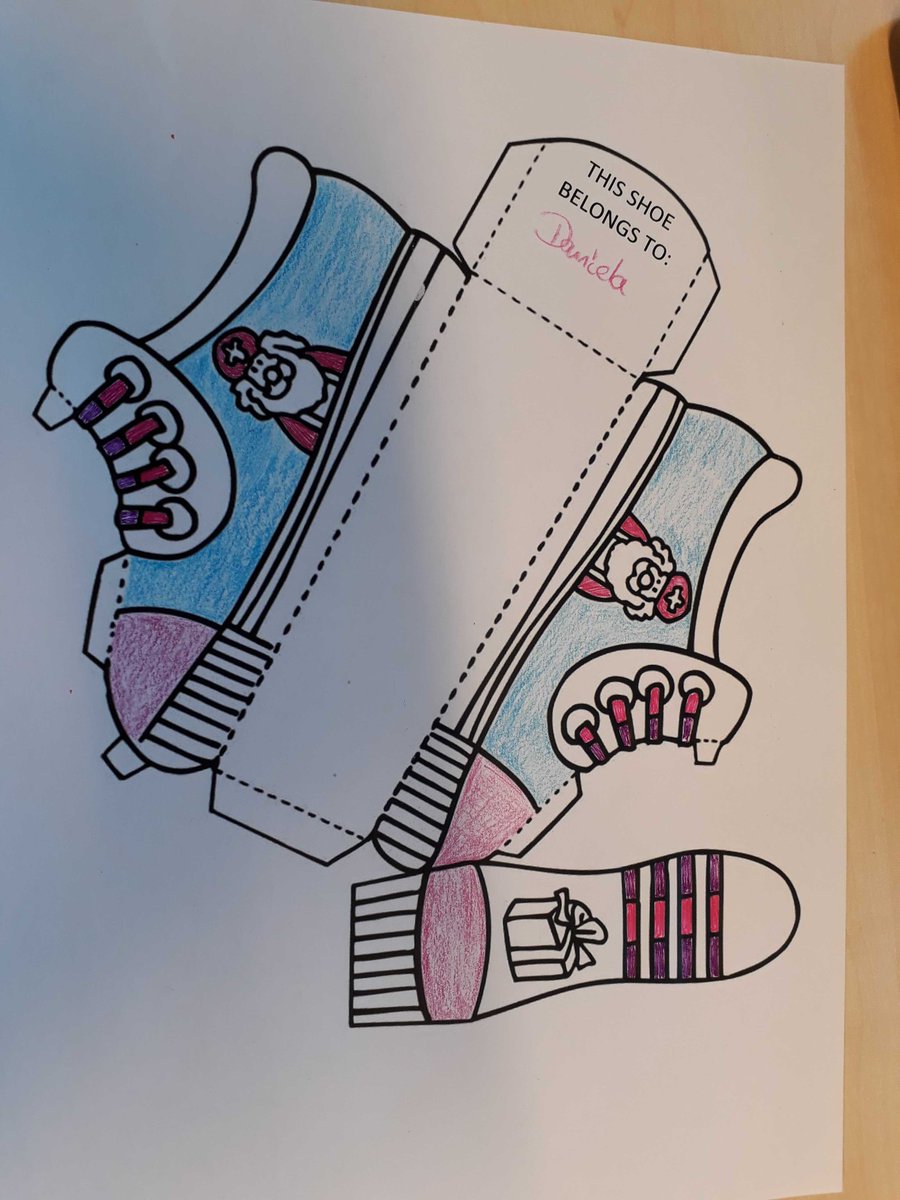 THIS SHOE
BELONGS TO:
Daniela